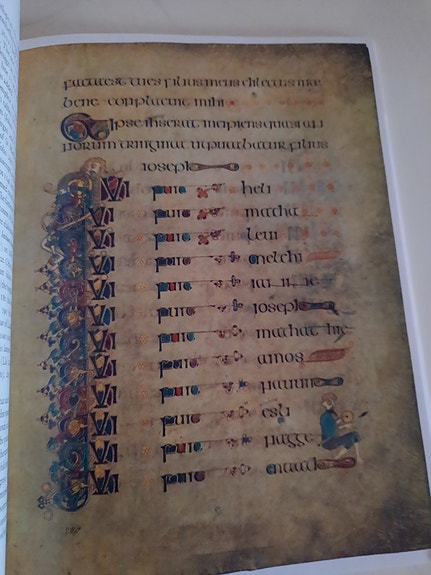 factaest tues filius meus dilectus inte
bene conplacuit mihi
Et ipse ihs erat incipiens quasi an
norum triginta utputabatur filius
ioseph
QUI fuit heli
QUI fuit mathat
QUI fuit leui
QUI fuit melchi
QUI fuit iannae
QUI fuit ioseph
QUI fuit mathathie
QUI fuit amos
QUI fuit nauum
QUI fuit esli
QUI fuit nagge
QUI fuit maath